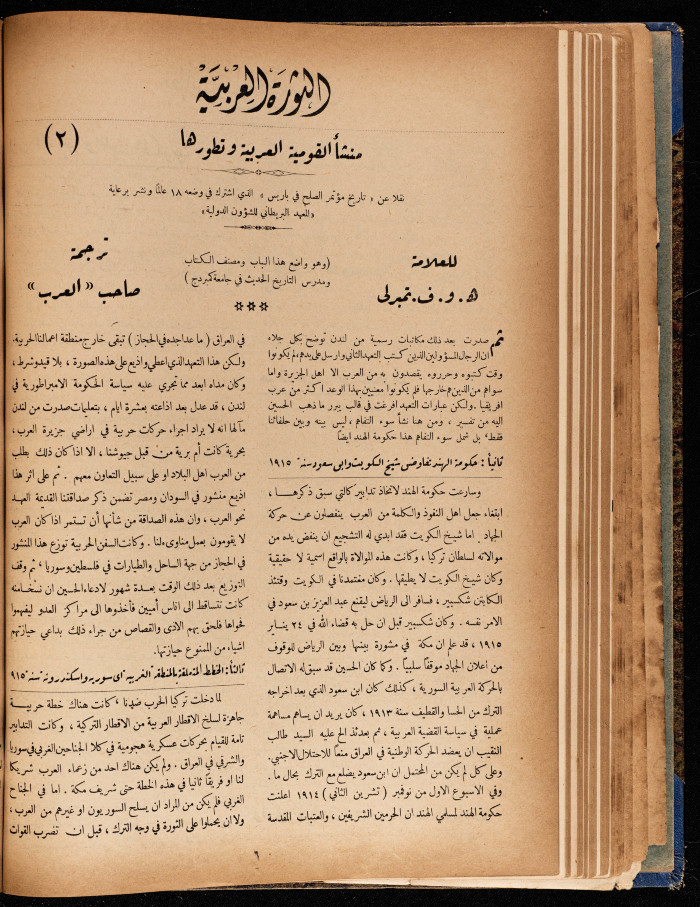 الثورة العربية
منشأ القومية العربية وتطورها
(٢)
نقلا عن « تاريخ مؤتمر الصلح في باريس » الذي اشترك في وضعه ١٨ عالمًا ونشر برعاية
«المعهد البريطاني للشؤون الدولية»
للعلامة
ه . و . ف . تمبرلي
(وهو واضع هذا الباب ومصنف الكتاب
ومدرس التاريخ الحديث في جامعة كمبردج )
ترجمة
صاحب «العرب»
***
ثم صدرت بعد ذلك مكاتبات رسمية من لندن توضح بكل جلاء
ان الرجال المسؤولين الذين كتب التعهد الثاني وارسل على يدهم لم يكونوا
وقت كتبوه وحرروه يقصدون به من العرب الا اهل الجزيرة واما
سواهم من الذين هم خارجها فلم يكونوا معنيين بهذا الوعد اكثر من عرب
افريقيا . ولكن عبارات التعهد افرغت في قالب يبرر ما ذهب الحسين
اليه من تفسير ، ومن هنا نشأ سوء التفاهم ، ليس بينه وبين حلفائنا
فقط ، بل شمل سوء التفاهم هذا حكومة الهند ايضاً
ثانياً : حكومة الهند تفاوض شيخ الكويت وابن سعود سنة ١٩١٥
وسارعت حكومة الهند لاتخاذ تدابير كالتي سبق ذكرها ،
ابتغاء جعل اهل النفوذ والكلمة من العرب ينفصلون عن حركة
الجهاد . اما شيخ الكويت فقد ابدي له التشجيع ان ينفض يده من
موالاته لسلطان تركيا ، وكانت هذه الموالاة بالواقع اسمية لا حقيقية
وكان شيخ الكويت لا يطيقها . وكان معتمدنا في الكويت وقتئذ
الكابتن شكسبير ، فسافر الى الرياض ليقنع عبد العزيز بن سعود في
الامر نفسه . وكان شكسبير قبل ان حل به قضاء الله في ٢٤ يناير
١٩١٥ ، قد علم ان مكة في مشورة بينها وبين الرياض للوقوف
من اعلان الجهاد موقفًا سلبيًا . وكما كان الحسين قد سبق له الاتصال
بالحركة العربية السورية ، كذلك كان ابن سعود الذي بعد اخراجه
الترك من الحسا والقطيف سنة ١٩١٣ ، كان يريد ان يساهم مساهمة
عملية في سياسة القضية العربية ، ثم بعدئذ الح عليه السيد طالب
النقيب ان يعضد الحركة الوطنية في العراق منعاً للاحتلال الاجنبي.
وعلى كل لم يكن من المحتمل ان ابن سعود يضلع مع الترك بحال ما .
وفي الاسبوع الاول من نوفمبر ( تشرين الثاني ) ١٩١٤ اعلنت
حكومة الهند لمسلمي الهند ان الحرمين الشريفين ، والعتبات المقدسة
في العراق ( ما عدا جده في الحجاز ) تبقى خارج منطقة اعمالنا الحربية.
ولكن هذا التعهد الذي اعطي واذيع على هذه الصورة ، بلا قيد وشرط ،
وكان مداه ابعد مما تجري عليه سياسة الحكومة الامبراطورية في
لندن ، قد عدل بعد اذاعته بعشرة ايام ، بتعليمات صدرت من لندن
مآلها انه لا يراد اجراء حركات حربية في اراضي جزيرة العرب ،
بحرية كانت أم برية من قبل جيوشنا ، الا اذا كان ذلك يطلب
من العرب اهل البلاد او على سبيل التعاون معهم . ثم على اثر هذا
اذيع منشور في السودان ومصر تضمن ذكر صداقتنا القديمة العهد
نحو العرب ، وان هذه الصداقة من شأنها أن تستمر اذا كان العرب
لا يقومون بعمل مناوىء لنا . وكانت السفن الحربية توزع هذا المنشور
في الحجاز من جهة الساحل والطيارات في فلسطين وسوريا ، ثم وقف
التوزيع بعد ذلك الوقت بعدة شهور لادعاء الحسين ان نسخا منه
كانت تتساقط الى اناس أميين فأخذوها الى مراكز العدو ليفهموا
فحواها فلحق بهم الاذى والقصاص من جراء ذلك بداعي حيازتهم
اشياء من الممنوع حيازتها.
ثالثاً : الخطط المتعلقة بالمنطقة الغربية اي سوريا واسكندرونة سنة ٩١٥
لما دخلت تركيا الحرب ضدنا ، كانت هناك خطة حربية
جاهزة لسلخ الاقطار العربية من الاقطار التركية ، وكانت التدابير
تامة للقيام بحركات عسكرية هجومية في كلا الجناحين الغربي في سوريا
والشرقي في العراق . ولم يكن هناك احد من زعماء العرب شريكا
لنا او فريقًا ثانيا في هذه الخطة حتى شريف مكة . اما في الجناح
الغربي فلم يكن من المراد ان يسلح السوريون او غيرهم من العرب ،
ولا ان يحملوا على الثورة في وجه الترك ، قبل ان تضرب القوات
٦